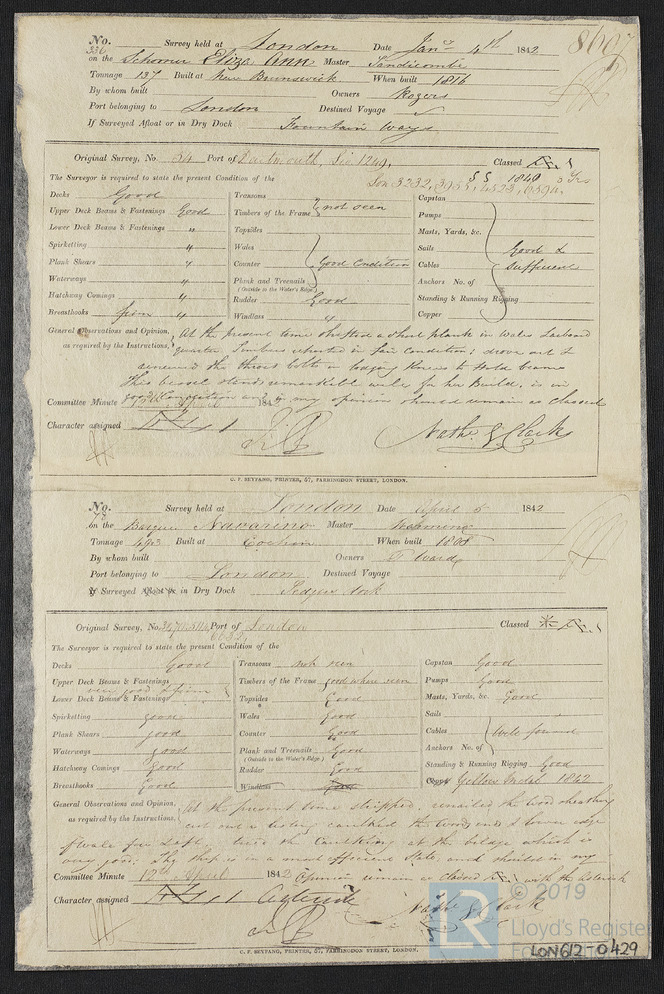 No. 336 Survey held at London Date Jany 4th 1842 8607
on the Schooner Eliza Ann Master Sandicombe
Tonnage 137 Built at New Brunswick When built 1816
By whom built Owners Rogers
Port belonging to London Destined Voyage
If Surveyed Afloat or in Dry Dock Fountain Ways
Original Survey, No. 34 Port of Dartmouth, Classed Æ. 1
The Surveyor is required to state the present Condition of the
Decks Good
Upper Deck Beams & Fastenings Good
Lower Deck Beams & Fastenings "
Spirketting "
Plank Shears "
Waterways "
Hatchway Comings "
Breasthooks firm "
Transoms
Timbers of the Frame not seen
Topsides
Wales
Counter Good Condition
Plank and Treenails
(Outside to the Water's Edge)
Rudder Good
Windlass "
Capstan
Pumps
Masts, Yards, &c.
Sails Good &
Cables Sufficient
Anchors No. of
Standing & Running Rigging
Copper
General Observations and Opinion, At the present time shifted a short plank in Wales Larboard
as required by the Instructions, quarter Timbers reported in fair Condition; drove out &
renewed the throat bolts in lodging Knees to Hold beams
This vessel stands remarkable well for her Build, is in
good Condition and in my opinion should remain as classed
Committee Minute 1842
Character assigned Æ 1
Nathl. G. Clark
C. F. SEYFANG, PRINTER, 57, FARRINGDON STREET, LONDON.
No. Survey held at London Date April 5 1842
on the Barque Navarino Master
Tonnage 493 Built at Cochin When built 1808
By whom built Owners T Ward
Port belonging to London Destined Voyage
If Surveyed Afloat or in Dry Dock dock
Original Survey, No. Port of London Classed * Æ. 1
The Surveyor is required to state the present Condition of the
Decks Good
Upper Deck Beams & Fastenings
very good & firm
Lower Deck Beams & Fastenings
Spirketting good
Plank Shears good
Waterways good
Hatchway Comings good
Breasthooks Good
Transoms not seen
Timbers of the Frame good where seen
Topsides Good
Wales Good
Counter Good
Plank and Treenails Good
(Outside to the Water's Edge)
Rudder Good
Windlass Good
Capstan Good
Pumps Good
Masts, Yards, &c. Good
Sails
Cables Well found
Anchors No. of
Standing & Running Rigging Good
Copper Yellow Metal 1842
General Observations and Opinion, At the present time stripped, the wood sheathing
as required by the Instructions, caulked the & lower edge
of wale fore & aft, tried the Caulking at the bilge which is
very good; This ship is in a most efficient State, and should in my
Committee Minute 12th April 1842 Opinion remain as classed Æ 1 with the asterisk
Character assigned Æ 1
Nathl. G. Clark
C. F. SEYFANG, PRINTER, 57, FARRINGDON STREET, LONDON.
LR © 2019
Lloyd's Register
LON612-0429